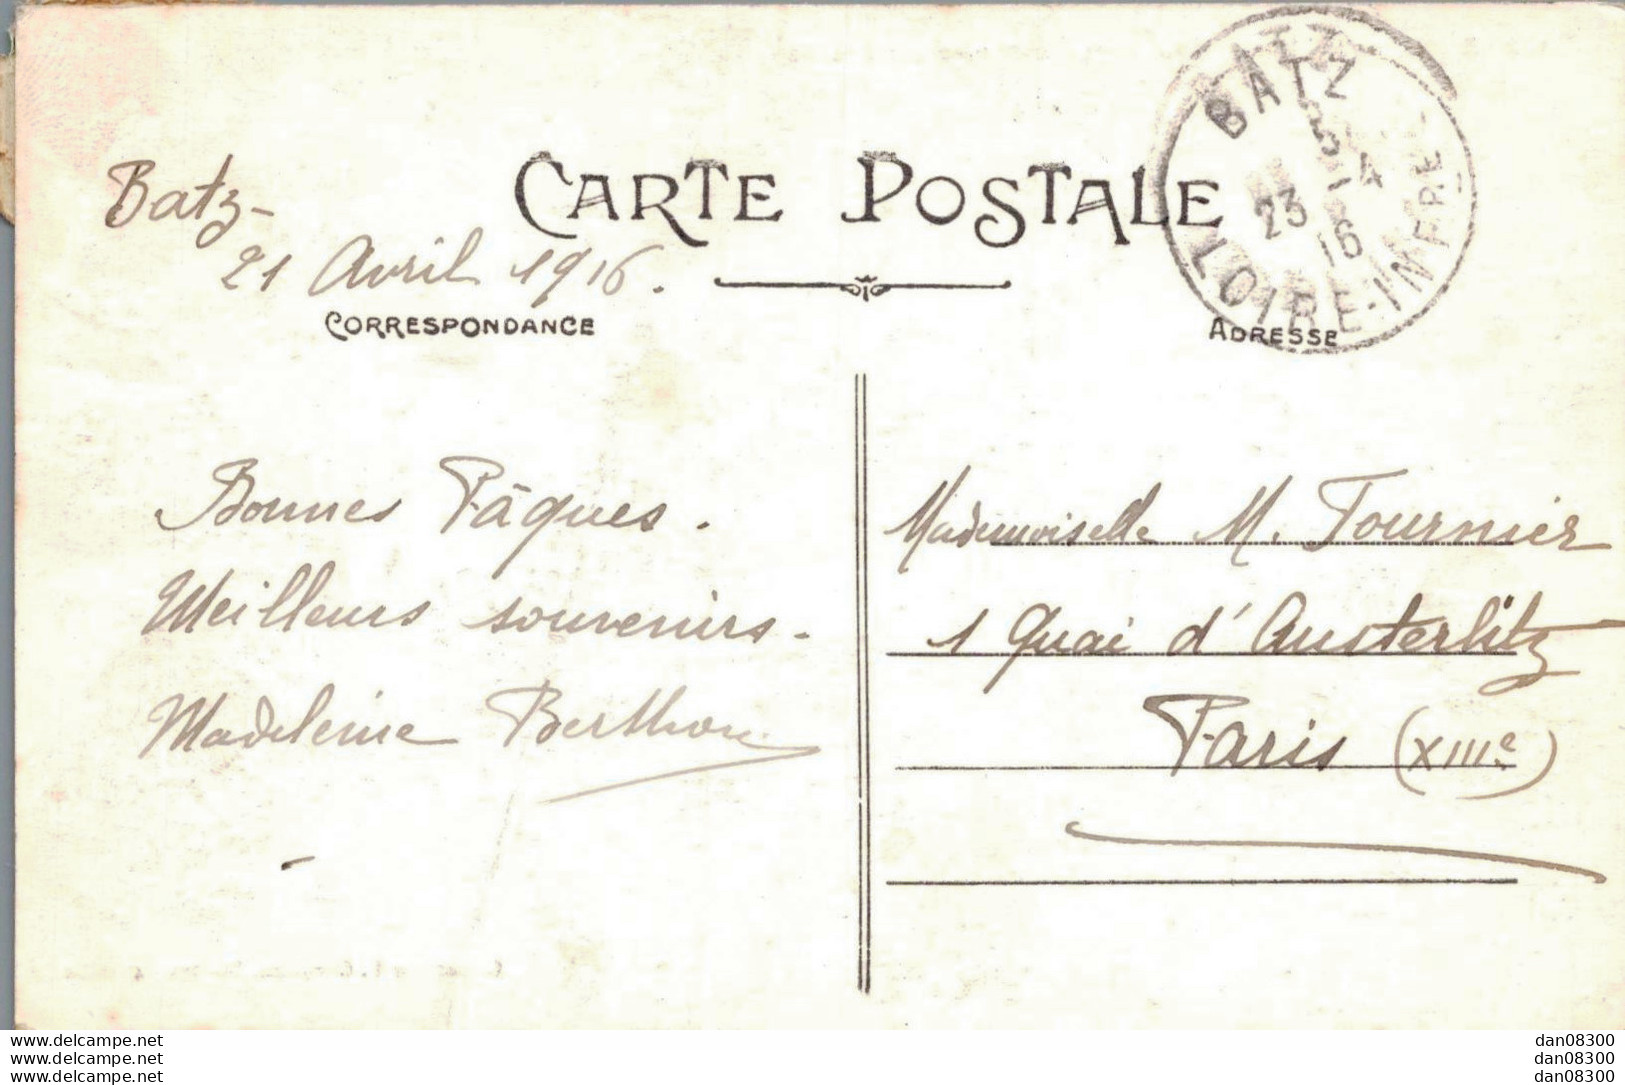 CARTE POSTALE
BATZ
23 - 4
16
LOIRE-INFRE
Batz-
21 Avril 1916.
CORRESPONDANCE
ADRESSE
Bonnes Pâques.
Meilleurs souvenirs.
Madeleine Berthou
Mademoiselle M. Tournier
1 Quai d'Austerlitz
Paris (XIIIe)
www.delcampe.net
www.delcampe.net
www.delcampe.net
dan08300
dan08300
dan08300